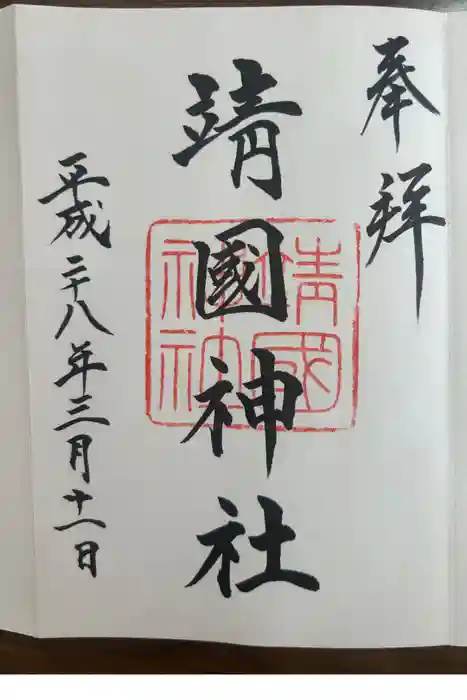 奉拝
靖國神社
靖國神社
平成二十八年三月十一日